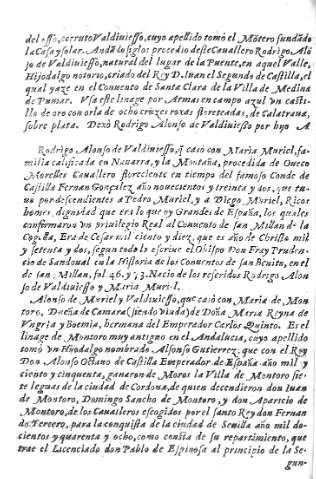 del osso, corruto Valdiuiesso, cuyo apellido tomò el Mõtero fundādo
la Casa y solar. Andādo siglos procedio deste Cauallero Rodrigo Alõ
so de Valdiuiesso, natural del lugar de la Puente, en aquel Valle,
Hijodalgo notorio, criado del Rey D. Iuan el Segundo de Castilla, el
qual yaze en el Conuento de Santa Clara de la Villa de Medina
de Pumar. Vsa este linage por Armas en campo azul vn casti-
llo de oro con orla de ocho cruzes roxas floreteadas, de Calatraua,
sobre plata. Dexò Rodrigo Alonso de Valdiuiesso por hijo A
Rodrigo Alonso de Valdiuiesso, q̃ casò con Maria Muriel, fa-
milia calificada en Nauarra, y la Montaña, procedida de Oneco
Morelles Cauallero floreciente en tiempo del famoso Conde de
Castilla Fernan Gonçalez, año nouecientos y treinta y dos, que tu-
uo por descendientes a Pedro Muriel, y a Diego Muriel, Ricos
homes, dignidad que era lo que oy Grandes de España, los quales
confirmaron vn priuilegio Real al Conuento de san Millan de la
Cogolla, Era de Cesar mil ciento y diez, que es año de Christo mil
y setenta y dos, segun todo lo escriue el Obispo Don Fray Pruden-
cio de Sandoual en la Historia de los Conuentos de san Benito, en el
de san Millan, fol. 46. y 73. Nacio de los referidos Rodrigo Alon
so de Valdiuiesso y Maria Muriel.
Alonso de Muriel y Valdiuiesso, que casò con Maria de Mon
toro, Dueña de Camara (siendo viuda) de Doña Maria Reyna de
Vngria y Boemia, hermana del Emperador Carlos Quinto. Es el
linage de Montoro muy antiguo en el Andalucia, cuyo apellido
tomò vn Hijodalgo nombrado Alfonso Gutierrez, que con el Rey
Don Alonso Octauo de Castilla Emperador de España año mil y
ciento y cinquenta, ganaron de Moros la Villa de Montoro sie-
te leguas de la ciudad de Cordoua, de quien decendieron don Iuan
de Montoro, Domingo Sancho de Montoro, y don Aparicio de
Montoro, de los Caualleros escogidos por el santo Rey don Fernan
do Tercero, para la conquista de la ciudad de Seuilla año mil do-
cientos y quarenta y ocho, como consta de su repartimiento, que
trae el Licenciado don Pablo de Espinosa al principio de la Se-
gun-